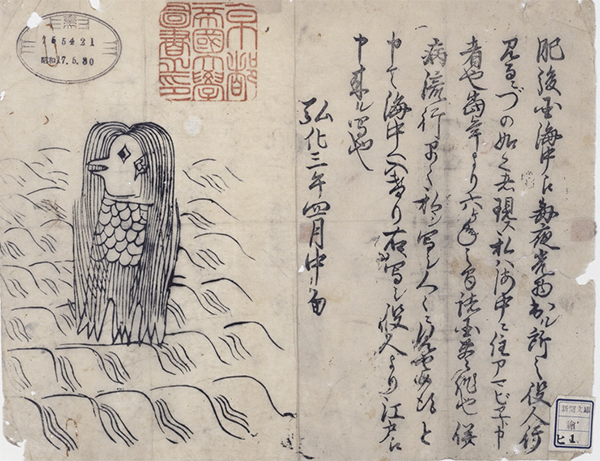 肥後国海中え毎夜光物出ル所之役人行
見るニづの如く者現ス私ハ海中ニ住アマビヱト申
者也當年より六ヶ年之間諸国豊作也併
病流行早々私シ写シ人々ニ見セ候得と
申て海中へ入けり右写シ役人より江戸え
申来ル写也
弘化三年四月中旬
京都
帝國大學
圖書之印
165421
昭和17.5.30
新聞文庫
ヒ 1